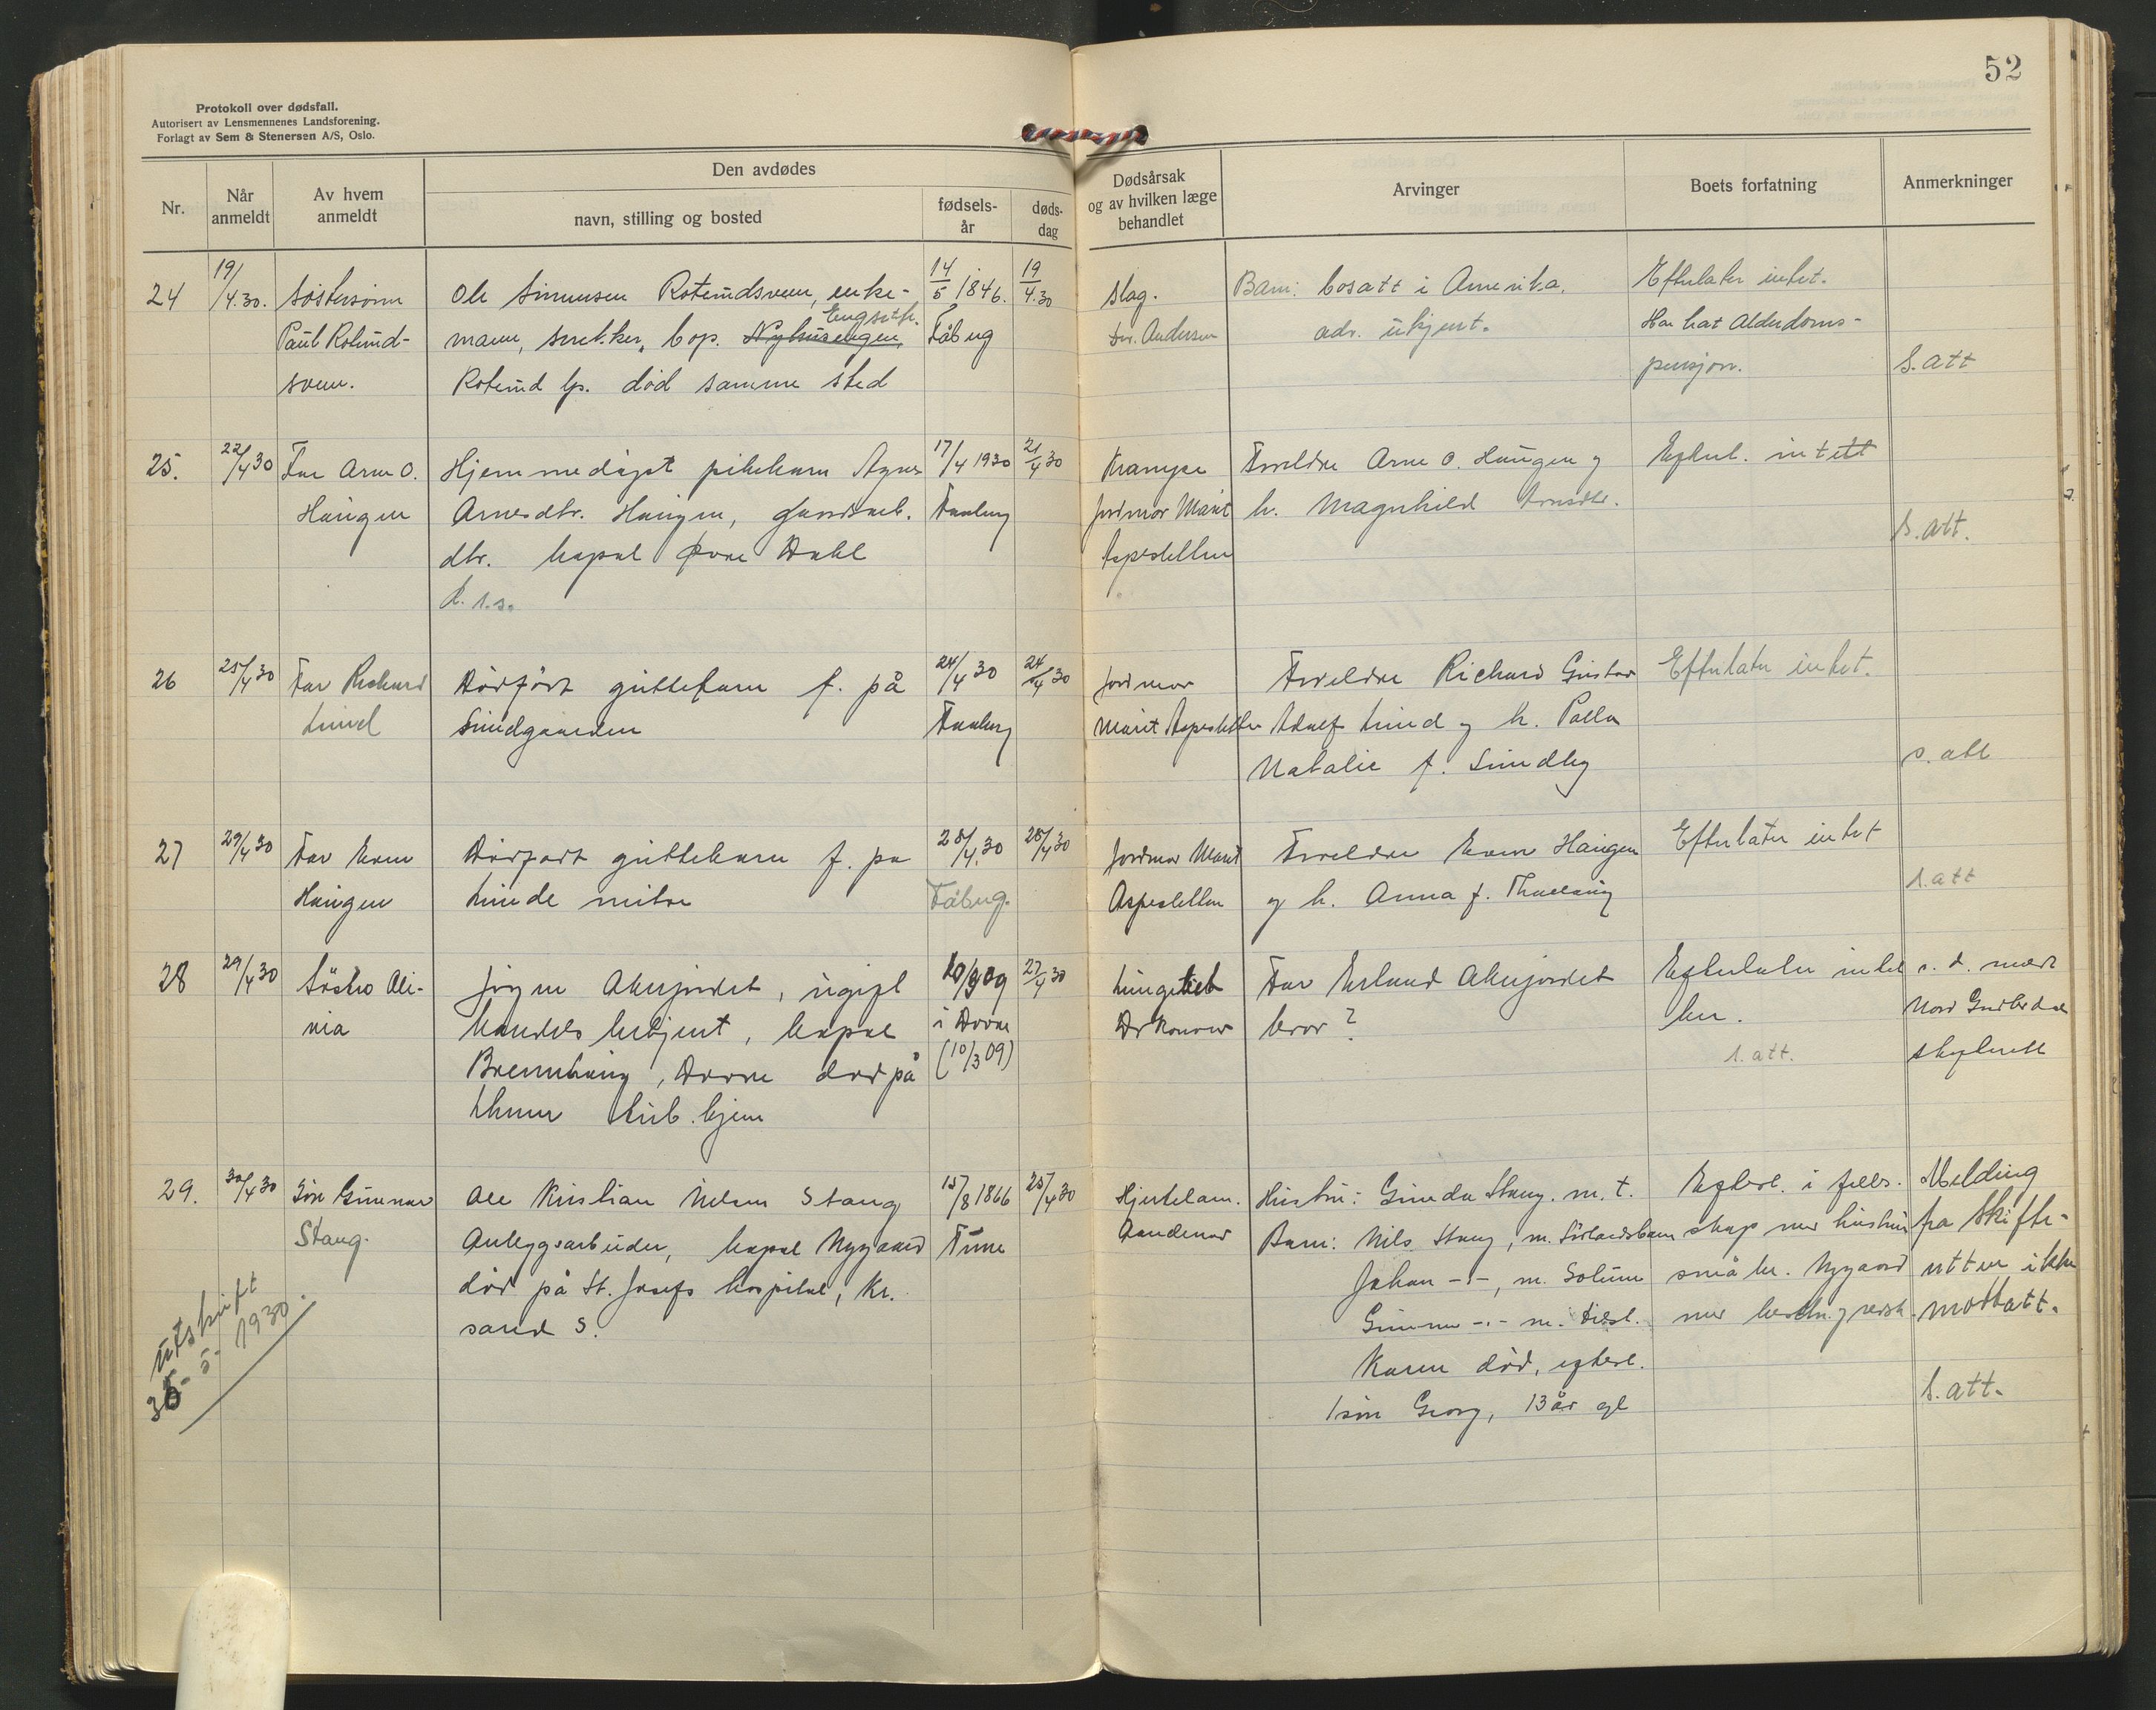 52
Protokoll over dødsfall.
Autorisert av Lensmennenes Landsforening.
Forlagt av Sem & Stenersen A/S, Oslo.
Nr.
Når anmeldt
Av hvem anmeldt
Den avdødes
navn, stilling og bosted
fødsels-
år
døds-
dag
Dødsårsak
og av hvilken læge
behandlet
Arvinger
Boets forfatning
Anmerkninger
24
19/4.30.
Søstersønn
Paul Roterud-
sveen.
Ole Simensen Roterudsveen, enke-
EngsetH.
mann, snekker, bop. Nyhusengen,
Roterud lp. død samme sted
14/5 1846.
Fåbug
19/4.30
Slag.
Dr. Andersen
Barn: bosatt i Amerika,
adr. ukjent.
Efterlater intet.
Har hat Alderdoms-
pensjon.
S. att
25.
22/4 30
Far Arne O.
Haugen
Hjemmedøpt pikebarn Agnes
Arnesdtr. Haugen, gaardsarb.
dtr. bopæl Øvre Dahl
d. s.s.
17/4 1930
Faaberg
21/4 30
Krampe
Jordmor Marit
Aspesletten
Foreldre Arne O. Haugen og
h. Magnhild Arnesdtr.
Efterl. intett
S. att.
26
25/4 30
Far Richard
Lund
Dødfødt guttebarn f. på
Sundgaarden
24/4 30
Faaberg
24/4 30
Jordmor
Marit Aspesletten
Foreldre Richard Gustav
Adolf Lund og h. Palla
Natalie f. Sundby
Efterlater intet.
s. att
27
29/4 30
Far Even
Haugen
Dødfødt guttebarn f. på
Lunde nitre
28/4.30
Fåbug.
28/4 30
Jordmor Marit
Aspesletten
Foreldre Even Haugen
og h. Anna f.
Efterlater intet
s. att
28
29/4 30
Søster Ali-
via
Jørgen Akerjordet, ugift
handelsbetjent, bopæl
Brennhaug, Dovre død på
Lhmr tub. hjem
10/3 09
i Dovre
(10/3 09)
27/4 30
Lungetub
Dr Konow
Far Erland Akerjordet
bror ?
Efterlater intet
her.
s. att.
s. d. medt
Nord Gudbrdal
skifterett
29.
30/4 30
Søn Gunnar
Stang.
Ole Kristian Nilsen Stang
Anleggsarbeider, bopæl Nygaard
død på St. Josefs hospital, Kr.
sand S.
15/8 1866
Tune
25/4 30
Hjertelam.
Hustru: Gunda Stang. m. t.
Barn: Nils Stang, m. Sørlandsbanen
Johan -"-, m. Solum
Gunnar -"- m. tilst.
Karen død, efterl.
1 søn Georg, 13 år gl
Efterl. i felles-
skap med hustru
små br. Nygaard
Melding
fra Skifte-
retten ikke
mottatt.
S. att.
Utskrift
-5- 1930.